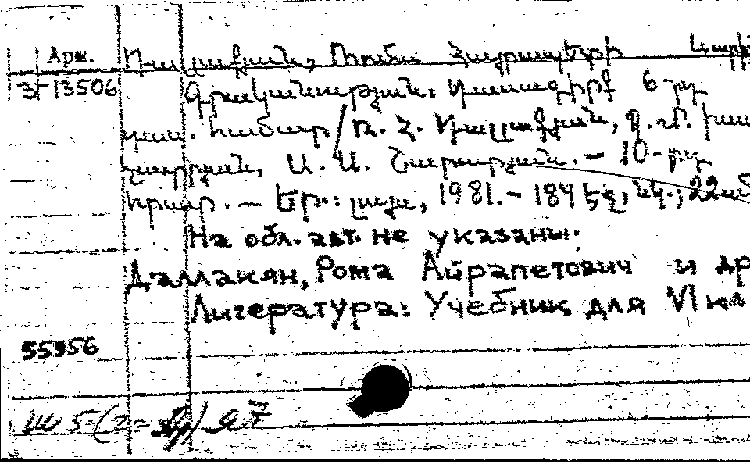 Арм. Դալլաքյան, Ռոմա Հայրապետի
Э-13506 Գրականություն: Դասագիրք 6-րդ
դաս. համար / Ռ. Հ. Դալլաքյան,
Ա. Ա. Շարուրյան. — 10-րդ
հրատ. — Եր.: Լույս, 1981. — 184 էջ, նկ.; 22սմ
На обл. авт. не указаны.
Даллакян, Рома Айрапетович и др
Литература: Учебник для VI кл
55956